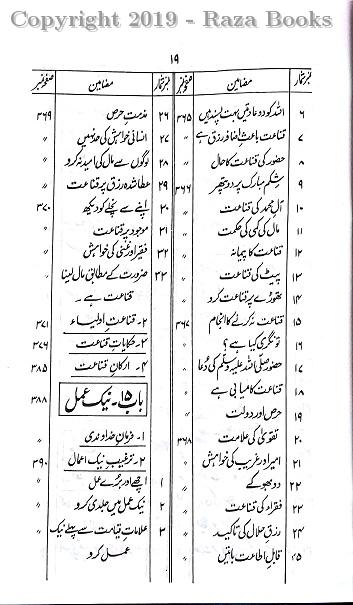 Copyright 2019 - Raza Books
۱۹
نمبر شمار مضامین صفحہ نمبر
۶ اللہ کو دو عادتیں بہت پسند ہیں ۳۶۵
۷ قناعت باعثِ اضافہ رزق ہے 〃
۸ حضور کی قناعت کا حال 〃
۹ شکم مبارک پر دو پتھر ۳۶۶
۱۰ آلِ محمد کی قناعت 〃
۱۱ مال کی کمی کی حکمت 〃
۱۲ قناعت کا پیمانہ 〃
۱۳ پیٹ کی قناعت 〃
۱۴ تھوڑے پر قناعت کرو 〃
۱۵ قناعت نہ کرنے کا انجام ۳۶۷
۱۶ تونگری کیا ہے؟ 〃
۱۷ حضور صلی اللہ علیہ وسلم کی دُعا 〃
۱۸ قناعت کامیابی ہے 〃
۱۹ حرص اور دولت 〃
۲۰ تقویٰ کی علامت ۳۶۸
۲۱ امیر اور غریب کی خواہش 〃
۲۲ دو بھوکے 〃
۲۳ فقراء کی قناعت 〃
۲۴ رزقِ حلال کی تاکید 〃
۲۵ قابلِ اطاعت باتیں 〃
نمبر شمار مضامین صفحہ نمبر
۲۶ مذمتِ حرص ۳۶۹
۲۷ انسانی خواہش کی حد نہیں 〃
۲۸ لوگوں سے مال کی امید نہ کرو 〃
۲۹ عطا شدہ رزق پر قناعت 〃
۳۰ اپنے سے نچلے کو دیکھ ۳۷۰
۳۱ موجود پر قناعت 〃
۳۲ فقیر اور غنی کی خواہش 〃
۳۳ ضرورت کے مطابق مال لینا 〃
قناعت ہے۔
۲۔ قناعتِ اولیاء ۳۷۱
۳۔ حکایاتِ قناعت ۳۷۶
۴۔ ارکانِ قناعت ۳۸۵
باب ۱۵۔ نیک عمل ۳۸۸
۱۔ فرمانِ خداوندی 〃
۲۔ ترغیبِ نیک اعمال ۳۹۰
۱ اچھے اور بُرے عمل 〃
۲ نیک عمل میں جلدی کرو 〃
۳ علاماتِ قیامت سے پہلے نیک 〃
عمل کرو